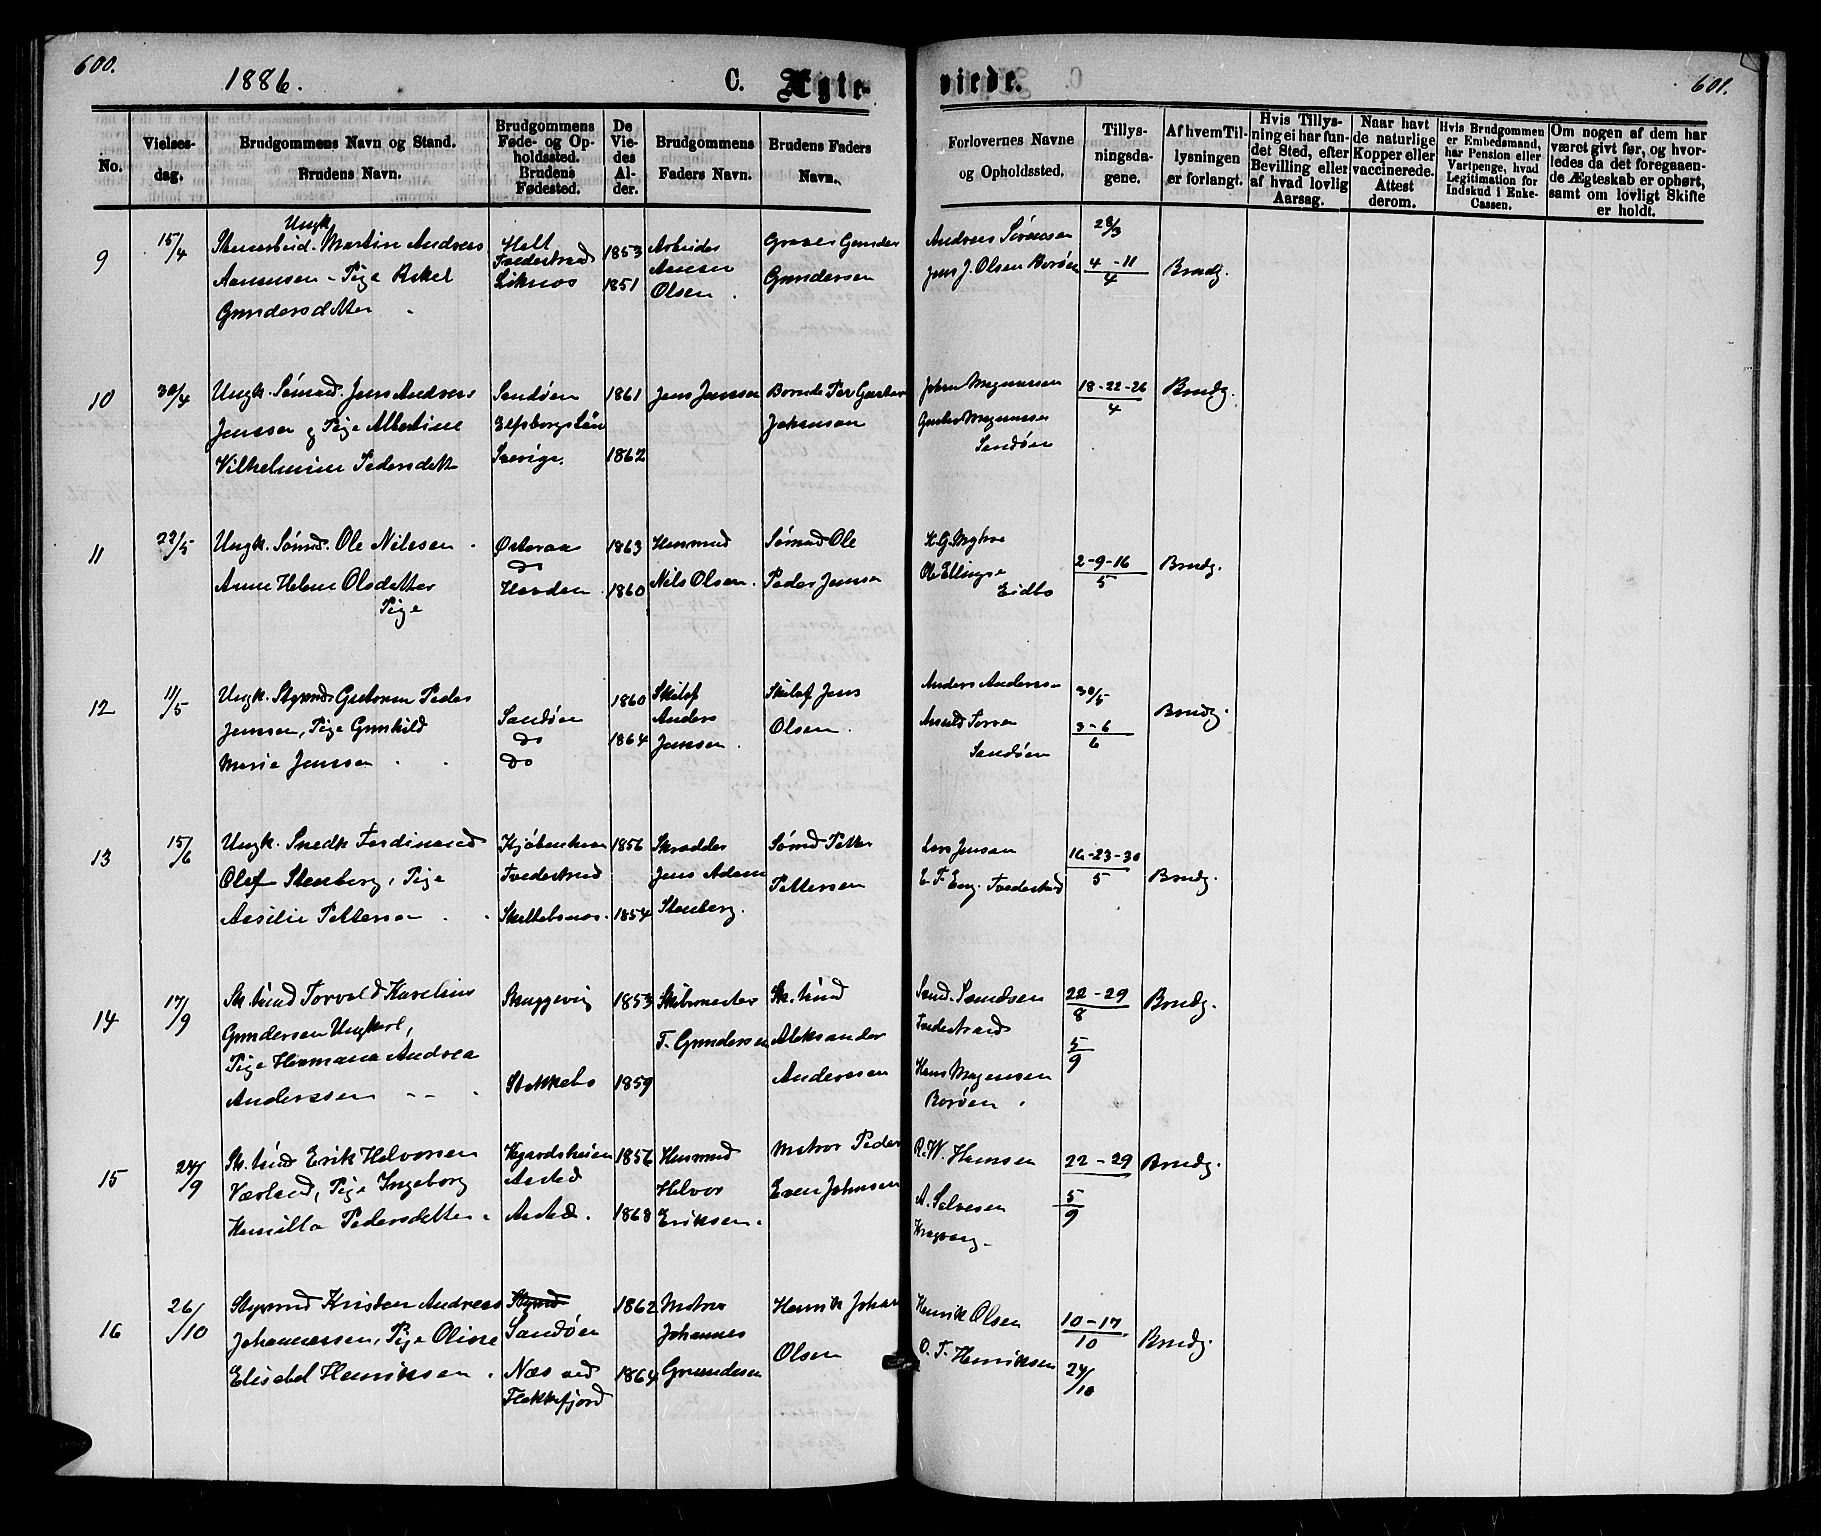 600.
1886.
C. Ægteviede.
601.
No.
Vielsesdag.
Brudgommens Navn og Stand.
Brudens Navn.
Brudgommens
Føde- og Opholdssted.
Brudens
Fødested.
De
Viedes
Alder.
Brudgommens
Faders Navn.
Brudens Faders
Navn.
Forlovernes Navne
og Opholdssted.
Tillysningsdagene.
Af hvem Tillysningen
er forlangt.
Hvis Tillysning ei har fundet Sted, efter
Bevilling eller
af hvad lovlig
Aarsag.
Naar havt
de naturlige
Kopper eller
vaccinerede.
Attest
derom.
Hvis Brudgommen
er Embedsmand,
har Pension eller
Vartpenge, hvad
Legitimation for
Indskud i Enke-Cassen.
Om nogen af dem har
været givt før, og hvorledes da det foregaaende Ægteskab er ophørt,
samt om lovligt Skifte
er holdt.
9
15/4
Ungk.
Martin Andreas
Aanensen - Pige
Gundersdatter
Tvedestrand
1853
1851
Arbeider
Aanen
Olsen
Gunder
Gundersen
Andreas Sørensen
Jens J. Olsen Borøen
28/3
4 - 11
4
Brudg.
10
30/4
Ungk. Sømd. Jens Andreas
Jenssen og Pige Albertine
Vilhelmine Pedersdatter
Sandøen
Elfsborgs Län
Sverige.
1861
1862
Jens Jenssen
Johansson
Johan Magnussen
Magnussen
Sandøen
18-22-26
4
Brudg.
11
22/5
Ungk. Sømd. Ole Nilssen
Anne Helene Olsdatter
Pige
Østeraa
do
1863
1860
Husmand
Nils Olsen.
Sømand Ole
Peder Jensen
Ole Ellingsen
Eidbo
2-9-16
5
Brudg.
12
11/5
Ungk. Styrmd. Peder
Jenssen, Pige Gunhild
Marie Jenssen
Sandøen
do
do
1860
1864
Anders
Jenssen.
Jens
Olsen.
Anders Anderssen
Sandøen
30/5
3-6
6
Brudg.
13
15/6
Ungk. Snedk Ferdinand
Olaf Stenberg, Pige
Petterssen
Kjøbenhavn
Tvedestrand
1856
1854
Skrædder
Jens Adam
Stenberg.
Sømd Petter
Pettersen
Lars Jensen
E. F. Eng. Tvedestrand
16-23-30
5
Brudg.
14
17/9
Torvald Karelius
Gundersen Ungkarl,
Pige Hermana Andrea
Anderssen
Skuggevig
1853
1859
Skibsmester
T. Gundersen
Aleksander
Anderssen
Tvedestrand
Hans Magnusen
Borøen.
22-29
8
5
9
Brudg.
15
24/9
Erik Halvorsen
Værland, Pige Ingeborg
Kamilla Pedersdatter.
Vegaardsheien
1856
1868
Husmand
Halvor
Eriksen.
Matros Peder
Even Johnsen
R. W. Hansen
A. Salvesen
22-29
5
9
Brudg.
16
26/10
Styrmd Kristen Andreas
Johannessen, Pige Oline
Elisabet Henriksen.
Styrmd
Sandøen
Næs ved
Flekkefjord
1862
1864
Matros
Johannes
Gundersen
Henrik Johan
Olsen
Henrik Olsen
O. T. Henriksen
10-17
10
24/10
Brudg.